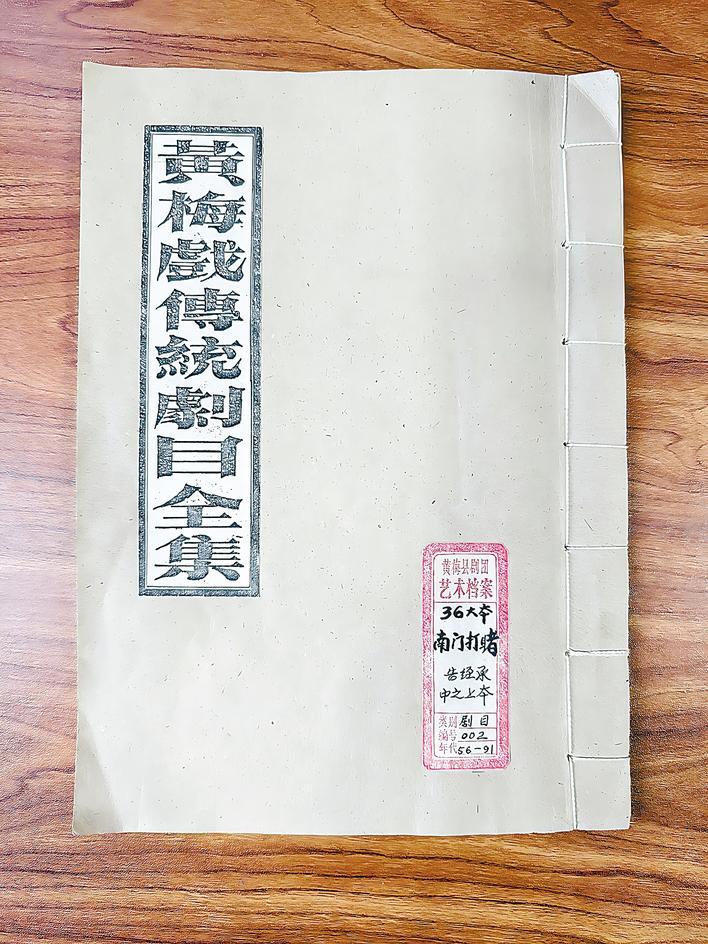 黃梅戲傳統劇目全集
黄梅县剧团
艺术档案
36大本
南门打赌
告经承
中之上本
类别 剧目
编号 002
年代 56-91